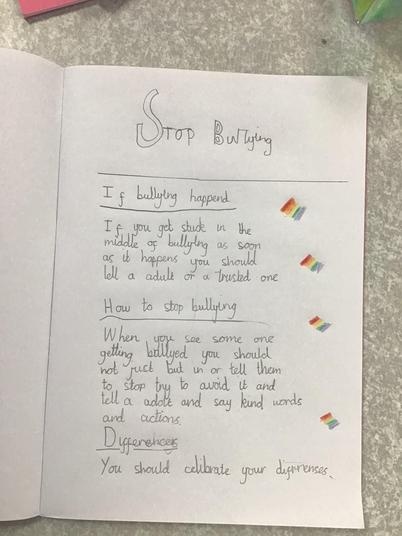 Stop Bullying
If bullying happend
If you get stuck in the
middle of bullying as soon
as it happens you should
tell a adult or a trusted one
How to stop bullying
When you see some one
getting bullyed you should
not just but in or tell them
to stop try to avoid it and
tell a adote and say kind words
and actions.
Differences
You should celibrate your diffrenses.